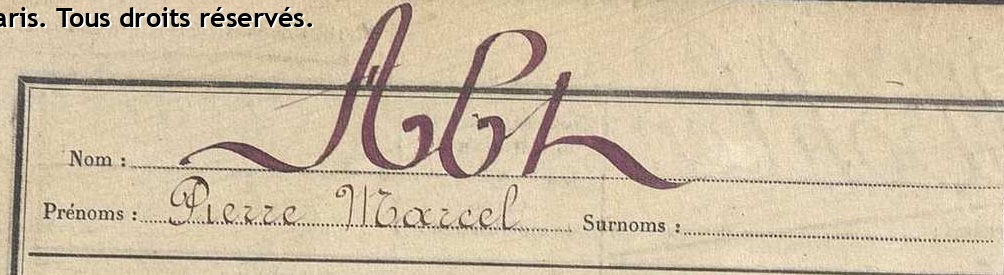 aris. Tous droits réservés.
Nom : Abt
Prénoms : Pierre Marcel Surnoms :